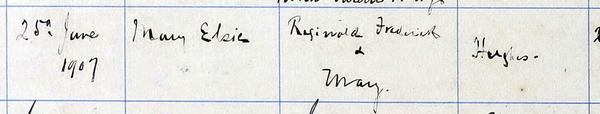 25th June
1907
Mary Elsie
Reginald Frederick
&
May.
Hughes.